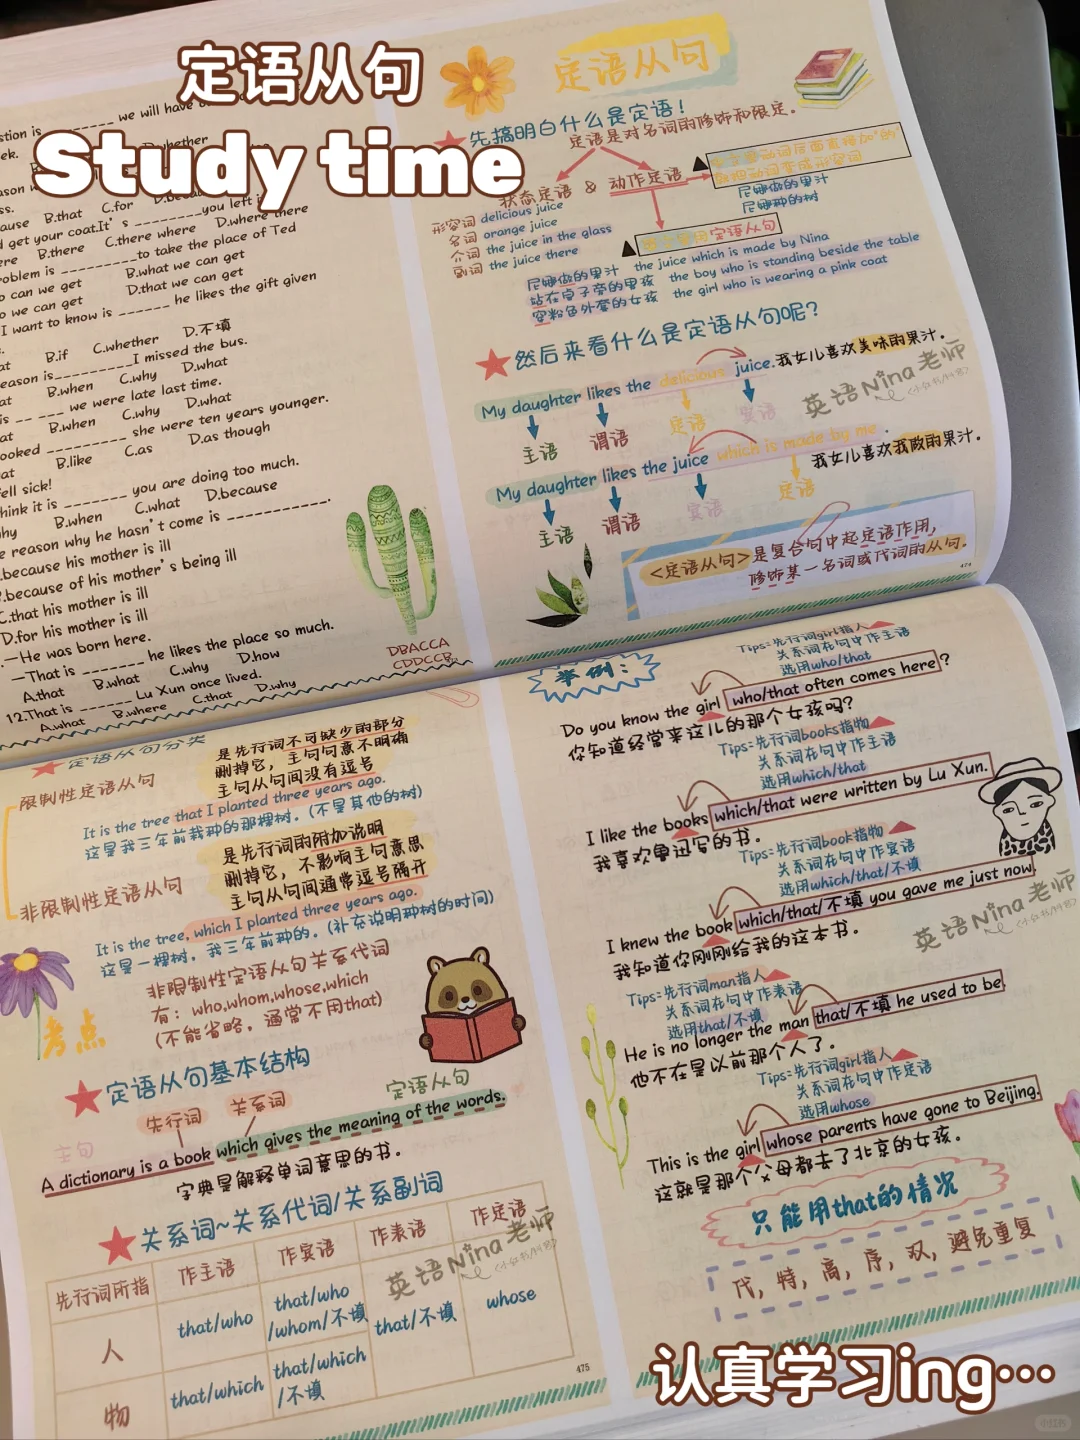 定语从句
Study time
stion is ________ we will have
ek.
whether
ause B.that C.for
d get your coat.It's ________ you left i
ere B.there C.there where D.where there
roblem is __________ to take the place of Ted
o can we get B.what we can get
o we can get D.that we can get
I want to know is ______ he likes the gift given
at B.if C.whether D.不填
eason is__________I missed the bus.
at B.when C.why D.what
is __ ___ we were late last time.
at B.when C.why D.what
ooked ________ she were ten years younger.
at B.like C.as D.as though
ell sick!
hink it is ________ you are doing too much.
hy B.when C.what D.because
e reason why he hasn't come is ___________.
.because his mother is ill
.because of his mother's being ill
C.that his mother is ill
D.for his mother is ill
.—He was born here.
—That is _______ he likes the place so much.
A.that B.what C.why D.how
12.That is _______ Lu Xun once lived.
A.what B.where C.that D.why
DBACCA
CDDCCB
定语从句
先搞明白什么是定语！
定语是对名词的修饰和限定。
状态定语 & 动作定语
形容词 delicious juice
名词 orange juice
介词 the juice in the glass
副词 the juice there
尼娜做的果汁
尼娜种的树
定语从句
尼娜做的果汁 the juice which is made by Nina
站在桌子旁的男孩 the boy who is standing beside the table
穿粉色外套的女孩 the girl who is wearing a pink coat
然后来看什么是定语从句呢？
My daughter likes the delicious juice.我女儿喜欢美味的果汁。
主语 谓语 定语 宾语
英语Nina老师
My daughter likes the juice which is made by me .
我女儿喜欢我做的果汁。
主语 谓语 宾语 定语
<定语从句>是复合句中起定语作用，
修饰某一名词或代词的从句。
474
定语从句分类
限制性定语从句
是先行词不可缺少的部分
删掉它，主句句意不明确
主句从句间没有逗号
It is the tree that I planted three years ago.
这是我三年前栽种的那棵树。(不是其他的树)
非限制性定语从句
是先行词的附加说明
删掉它，不影响主句意思
主句从句间通常逗号隔开
It is the tree, which I planted three years ago.
这是一棵树，我三年前种的。(补充说明种树的时间)
非限制性定语从句关系代词
有：who,whom,whose,which
(不能省略，通常不用that)
考点
定语从句基本结构
主句 先行词 关系词 定语从句
A dictionary is a book which gives the meaning of the words.
字典是解释单词意思的书。
关系词~关系代词/关系副词
先行词所指 作主语 作宾语 作表语 作定语
人 that/who that/who/whom/不填 that/不填 whose
物 that/which that/which/不填
英语Nina老师
475
举例：
Tips:先行词girl指人
关系词在句中作主语
选用who/that
Do you know the girl who/that often comes here?
你知道经常来这儿的那个女孩吗?
Tips:先行词books指物
关系词在句中作主语
选用which/that
I like the books which/that were written by Lu Xun.
我喜欢鲁迅写的书。
Tips:先行词book指物
关系词在句中作宾语
选用which/that/不填
I knew the book which/that/不填 you gave me just now.
我知道你刚刚给我的这本书。
英语Nina老师
Tips:先行词man指人
关系词在句中作表语
选用that/不填
He is no longer the man that/不填 he used to be.
他不在是以前那个人了。
Tips:先行词girl指人
关系词在句中作定语
选用whose
This is the girl whose parents have gone to Beijing.
这就是那个父母都去了北京的女孩。
只能用that的情况
代，特，高，序，双，避免重复
认真学习ing…
小红书